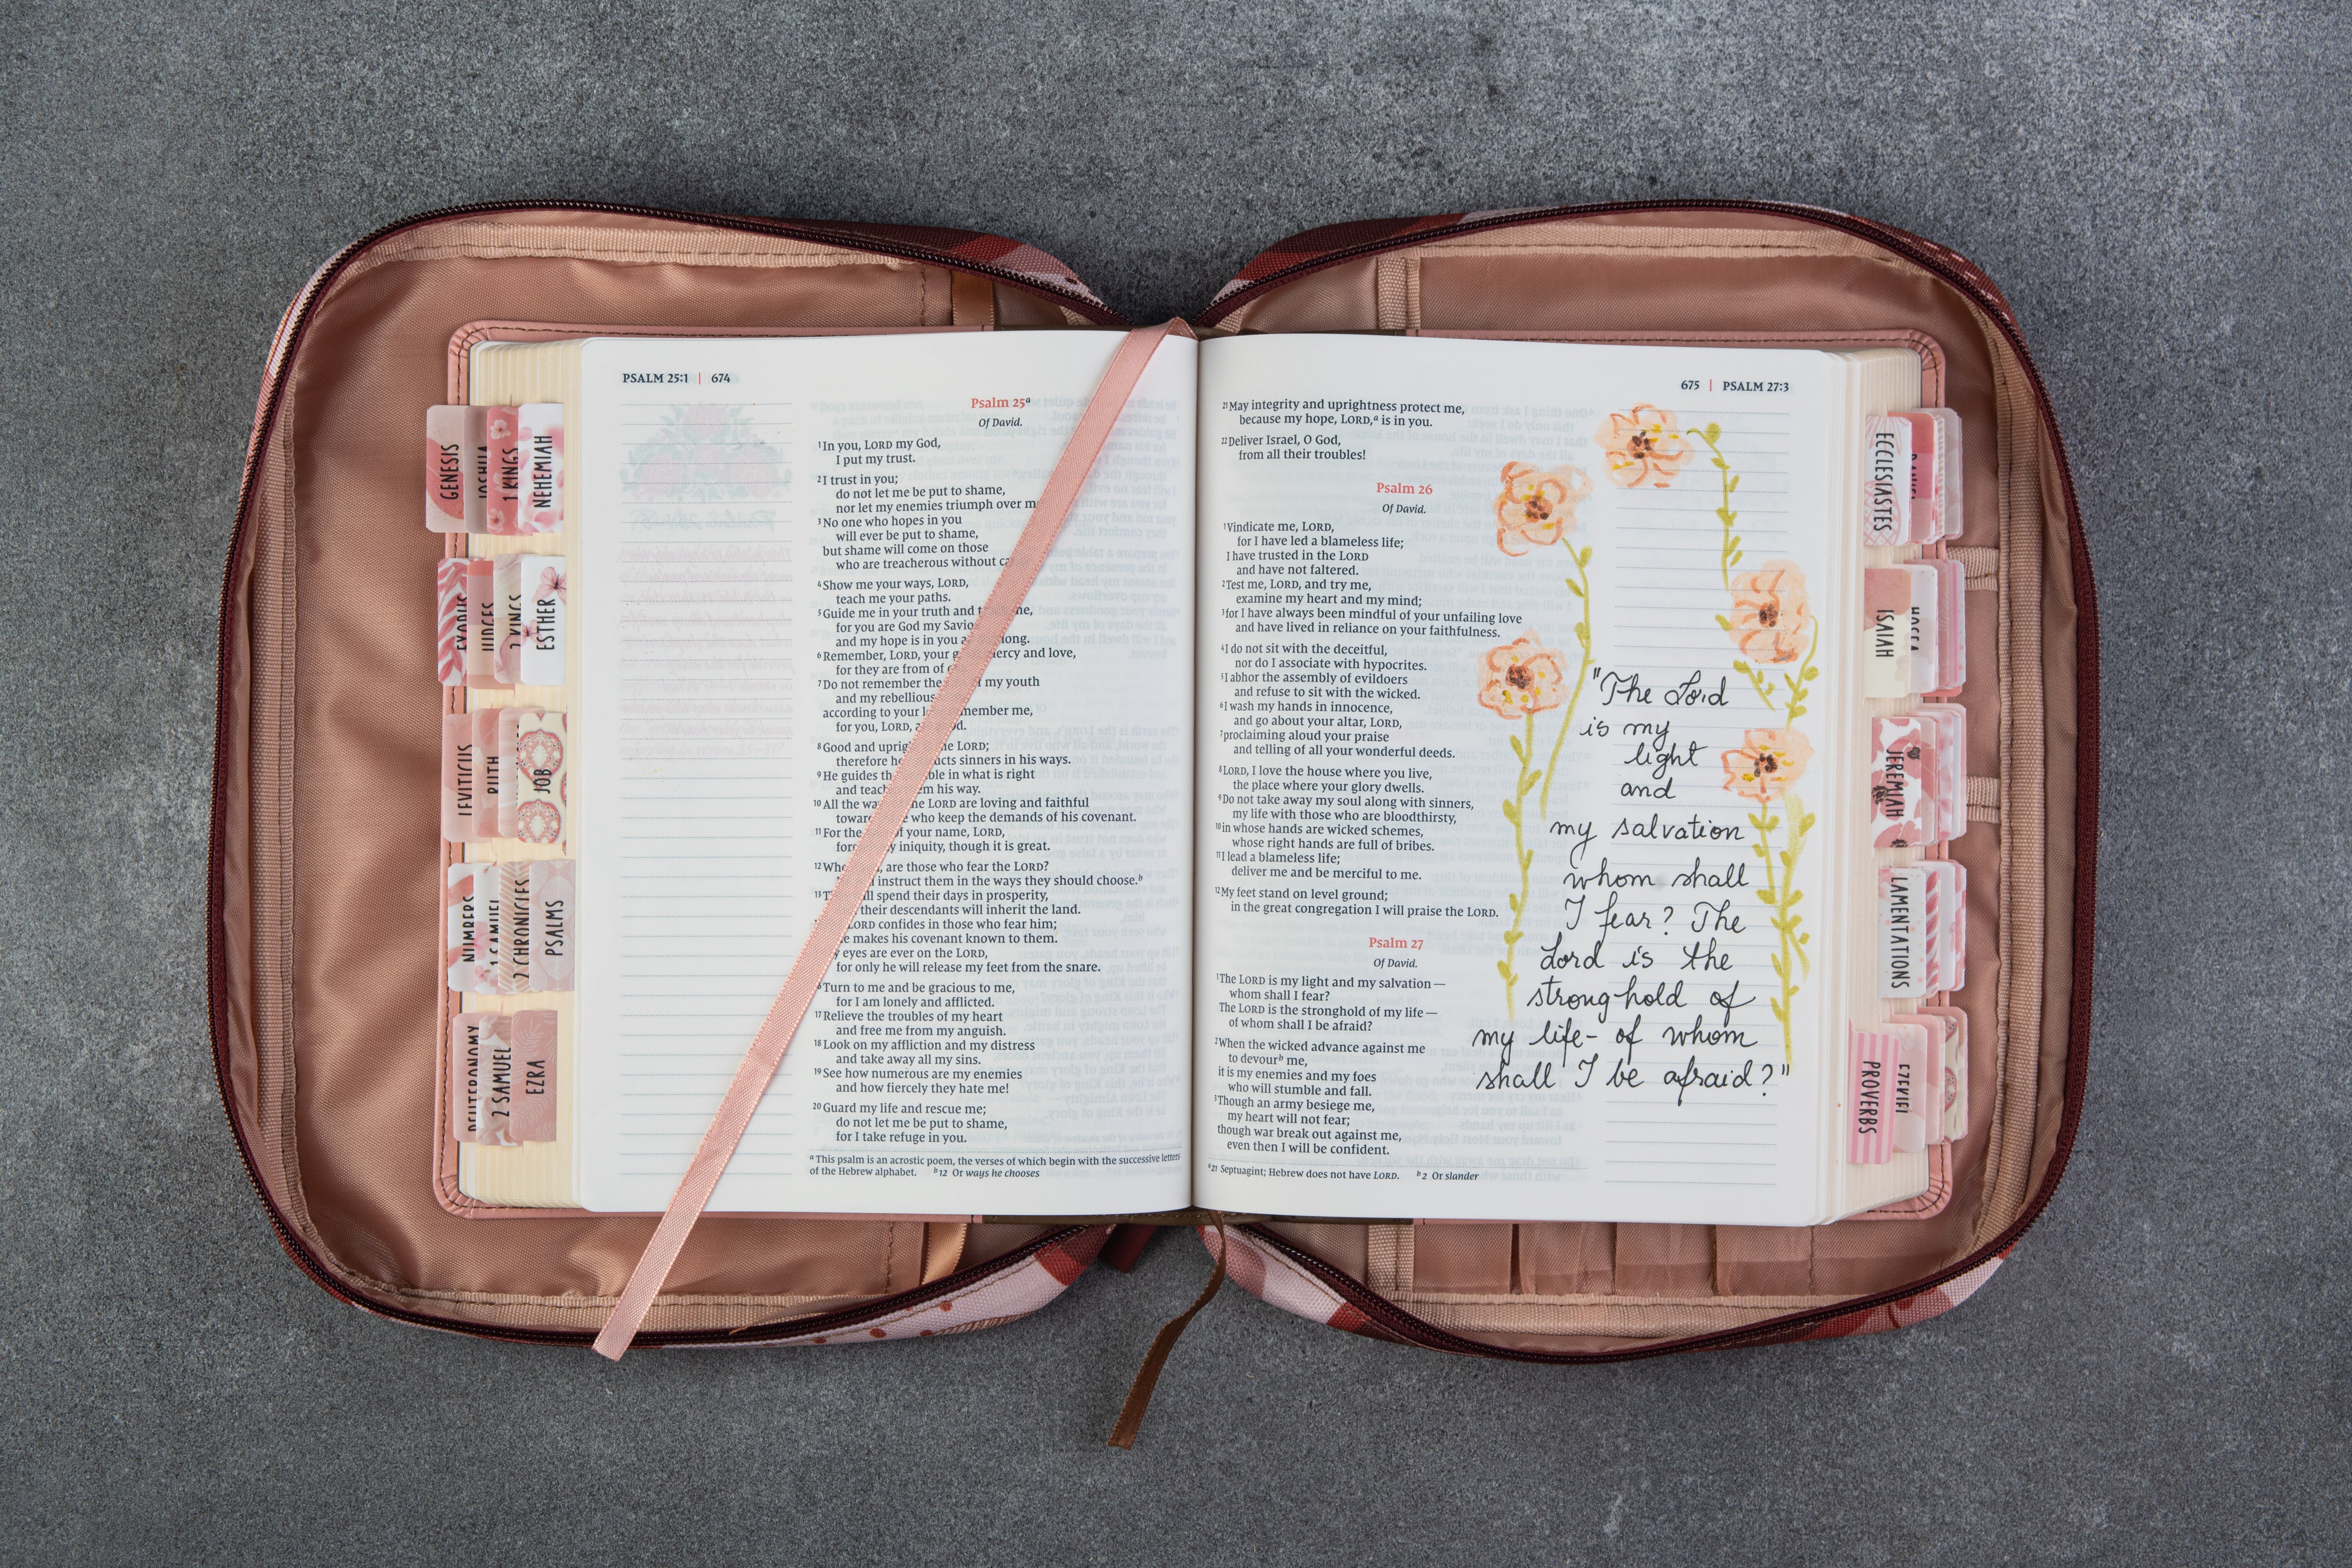 PSALM 25:1 | 674
Psalm 25ᵃ
Of David.
¹In you, LORD my God,
I put my trust.
²I trust in you;
do not let me be put to shame,
nor let my enemies triumph over
³No one who hopes in you
will ever be put to shame,
but shame will come on those
who are treacherous without
⁴Show me your ways, LORD,
teach me your paths.
⁵Guide me in your truth and me,
for you are God my
and my hope is in you long.
⁶Remember, LORD, your mercy and love,
for they are from of
⁷Do not remember the my youth
and my rebellious
according to your remember me,
for you, LORD,
⁸Good and the LORD;
therefore he sinners in his ways.
⁹He guides in what is right
and his way.
¹⁰All the the LORD are loving and faithful
who keep the demands of his covenant.
¹¹For the of your name, LORD,
iniquity, though it is great.
¹² are those who fear the LORD?
instruct them in the ways they should choose.ᵇ
¹³ spend their days in prosperity,
their descendants will inherit the land.
LORD confides in those who fear him;
makes his covenant known to them.
eyes are ever on the LORD,
for only he will release my feet from the snare.
Turn to me and be gracious to me,
for I am lonely and afflicted.
¹⁷Relieve the troubles of my heart
and free me from my anguish.
¹⁸Look on my affliction and my distress
and take away all my sins.
¹⁹See how numerous are my enemies
and how fiercely they hate me!
²⁰Guard my life and rescue me;
do not let me be put to shame,
for I take refuge in you.
ᵃ This psalm is an acrostic poem, the verses of which begin with the successive letters
of the Hebrew alphabet. ᵇ 12 Or ways he chooses
675 | PSALM 27:3
²¹May integrity and uprightness protect me,
because my hope, LORD,ᵃ is in you.
²²Deliver Israel, O God,
from all their troubles!
Psalm 26
Of David.
¹Vindicate me, LORD,
for I have led a blameless life;
I have trusted in the LORD
and have not faltered.
²Test me, LORD, and try me,
examine my heart and my mind;
³for I have always been mindful of your unfailing love
and have lived in reliance on your faithfulness.
⁴I do not sit with the deceitful,
nor do I associate with hypocrites.
⁵I abhor the assembly of evildoers
and refuse to sit with the wicked.
⁶I wash my hands in innocence,
and go about your altar, LORD,
⁷proclaiming aloud your praise
and telling of all your wonderful deeds.
⁸LORD, I love the house where you live,
the place where your glory dwells.
⁹Do not take away my soul along with sinners,
my life with those who are bloodthirsty,
¹⁰in whose hands are wicked schemes,
whose right hands are full of bribes.
¹¹I lead a blameless life;
deliver me and be merciful to me.
¹²My feet stand on level ground;
in the great congregation I will praise the LORD.
Psalm 27
Of David.
¹The LORD is my light and my salvation—
whom shall I fear?
The LORD is the stronghold of my life—
of whom shall I be afraid?
²When the wicked advance against me
to devourᵇ me,
it is my enemies and my foes
who will stumble and fall.
³Though an army besiege me,
my heart will not fear;
though war break out against me,
even then I will be confident.
ᵃ 21 Septuagint; Hebrew does not have LORD. ᵇ 2 Or slander
"The Lord
is my
light
and
my salvation
whom shall
I fear? The
Lord is the
stronghold of
my life- of whom
shall I be afraid?"
GENESIS
JOSHUA
1 KINGS
NEHEMIAH
EXODUS
JUDGES
2 KINGS
ESTHER
LEVITICUS
RUTH
JOB
NUMBERS
1 SAMUEL
2 CHRONICLES
PSALMS
DEUTERONOMY
2 SAMUEL
EZRA
ECCLESIASTES
DANIEL
ISAIAH
HOSEA
JEREMIAH
LAMENTATIONS
PROVERBS
EZEKIEL